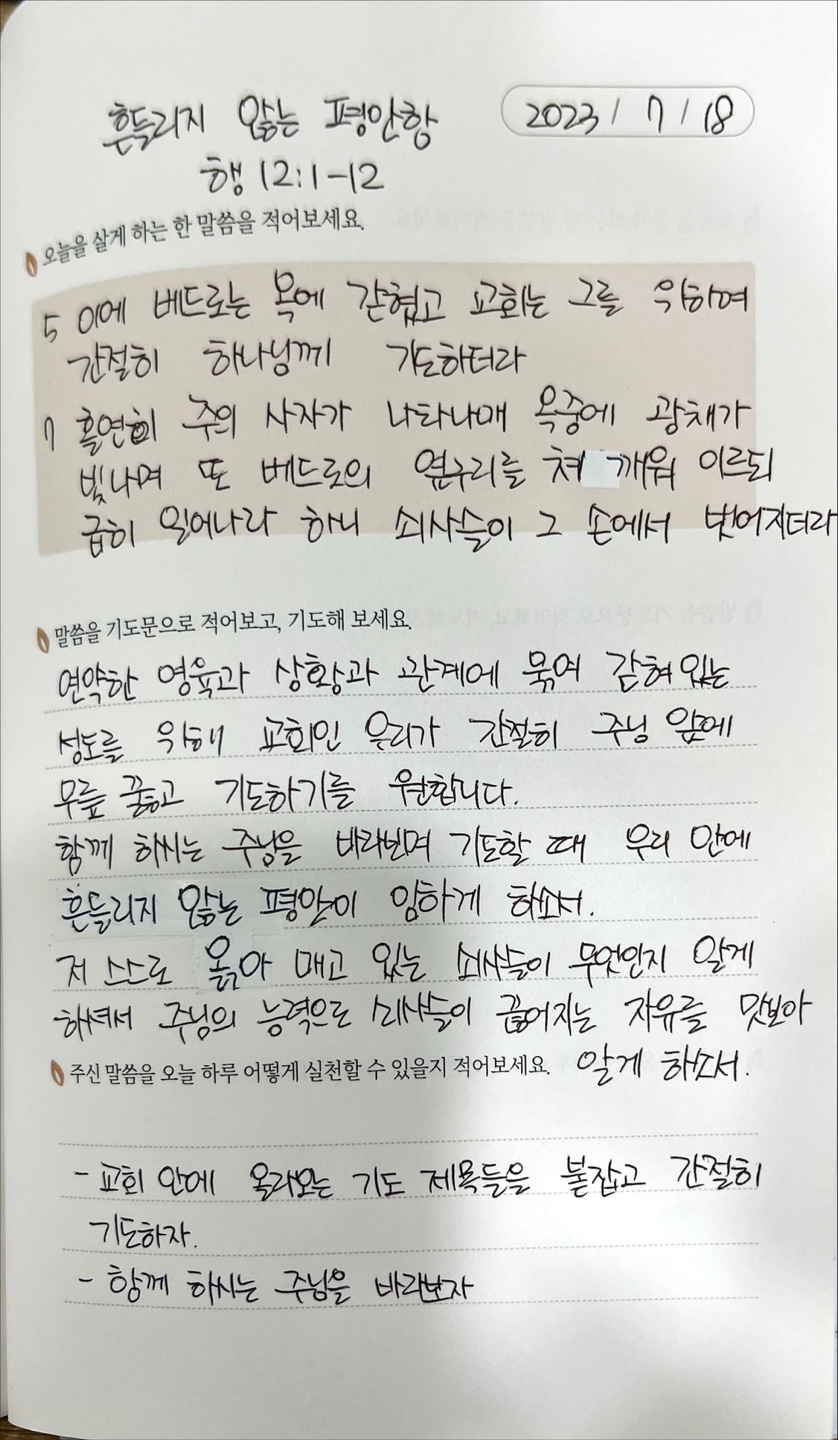 흔들리지 않는 평안함
2023 / 7 / 18
행 12:1-12
오늘을 살게 하는 한 말씀을 적어보세요.
5 이에 베드로는 옥에 갇혔고 교회는 그를 위하여
간절히 하나님께 기도하더라
7 홀연히 주의 사자가 나타나매 옥중에 광채가
빛나며 또 베드로의 옆구리를 쳐 깨워 이르되
급히 일어나라 하니 쇠사슬이 그 손에서 벗어지더라
말씀을 기도문으로 적어보고, 기도해 보세요.
연약한 영육과 상황과 관계에 묶여 갇혀있는
성도를 위해 교회인 우리가 간절히 주님 앞에
무릎 꿇고 기도하기를 원합니다.
함께 하시는 주님을 바라보며 기도할 때 우리 안에
흔들리지 않는 평안이 임하게 하소서.
저 스스로 옭아 매고 있는 쇠사슬이 무엇인지 알게
하셔서 주님의 능력으로 쇠사슬이 끊어지는 자유를 맛보아
알게 하소서.
주신 말씀을 오늘 하루 어떻게 실천할 수 있을지 적어보세요.
- 교회 안에 올라오는 기도 제목들을 붙잡고 간절히
기도하자.
- 함께 하시는 주님을 바라보자